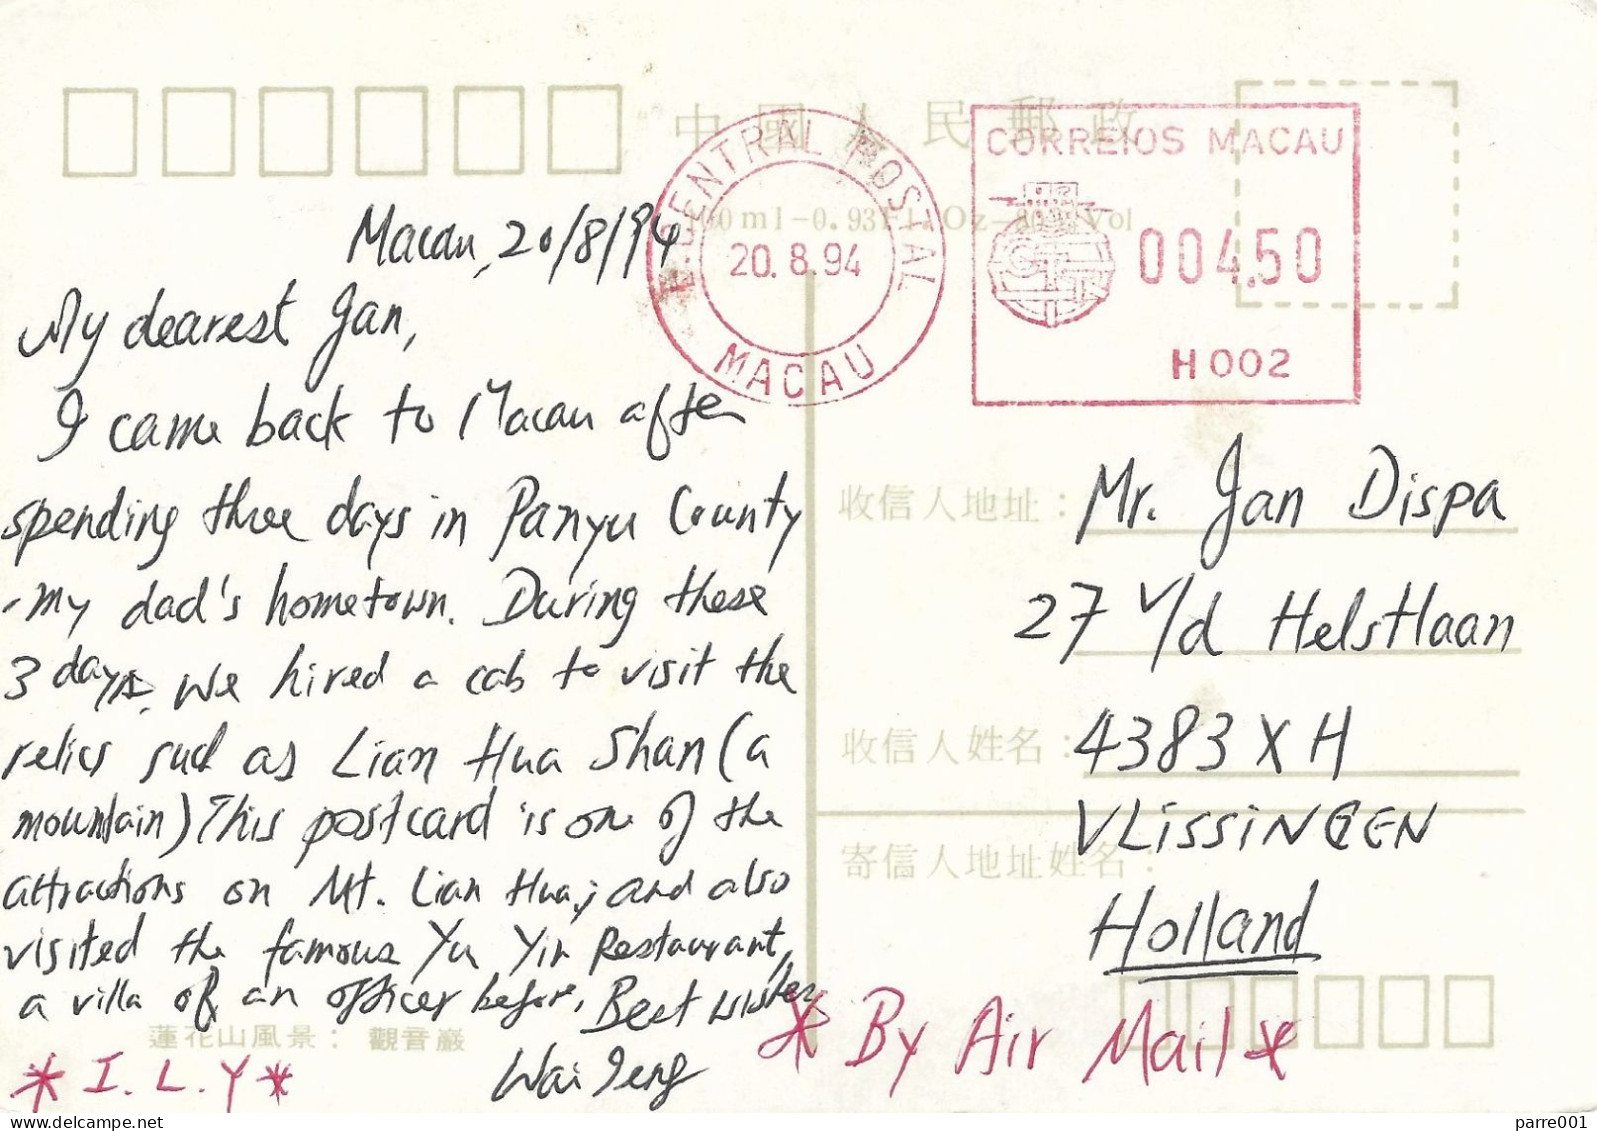 中國人民郵政
E. CENTRAL POSTAL
20. 8. 94
MACAU
CORREIOS MACAU
CTT
004.50
H 002
100ml-0.93Fl.Oz-80% Vol
Macau, 20/8/94
My dearest Jan,
I came back to Macau after
spending three days in Panyu County
-my dad's hometown. During these
3 days, we hired a cab to visit the
relics such as Lian Hua Shan (a
mountain) This postcard is one of the
attractions on Mt. Lian Hua, and also
visited the famous Yu Yin Restaurant,
a villa of an officer before. Best wishes
Wai Ieng
蓮花山風景：觀音巖
* I. L. Y *
收信人地址：
Mr. Jan Dispa
27 V/d Helstlaan
收信人姓名：
4383 XH
VLiSSiNGEN
寄信人地址姓名：
Holland
* By Air Mail *
delcampe.net
parre001